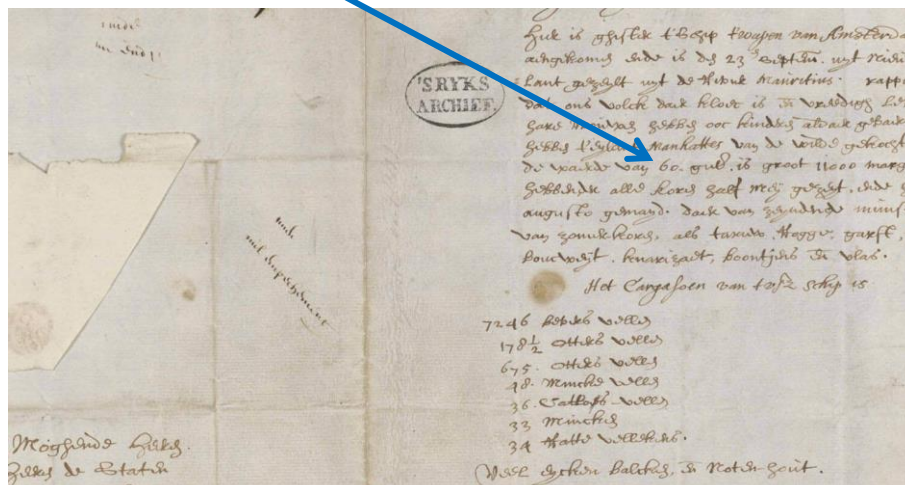 'SRYKS
ARCHIEF.
hier is ghister t'Schip t'wapen van Amsterda
aengekomen ende is den 23en septem. uyt Nieu
Lant gezeylt uyt de rivier Mauritius. rapp
dat ons volck daer kloec is en vreedigh le
hare vrouwen hebben ooc kinders aldaer gebaer
hebben t'eylant Manhattes van de wilde gekocht
de waerde van 60. guld. is groot 11000 marg
hebbende alle koren half mey gezeyt. ende
augusto gemayd. daer van zeyndende muns
van zomerkoren, als taruw, Rogge, garst,
boucweyt, knarizaet, boontjens en vlas.
Het Cargasoen van tvsz schip is
7246 bevers vellen
178½ otters vellen
675. otters vellen
48. mincke vellen
36. Catloes vellen
33 mincken
34 Ratte vellekens.
Veel eycken balcken, en Noten hout.
Moghende Heeren
Heeren de Staten